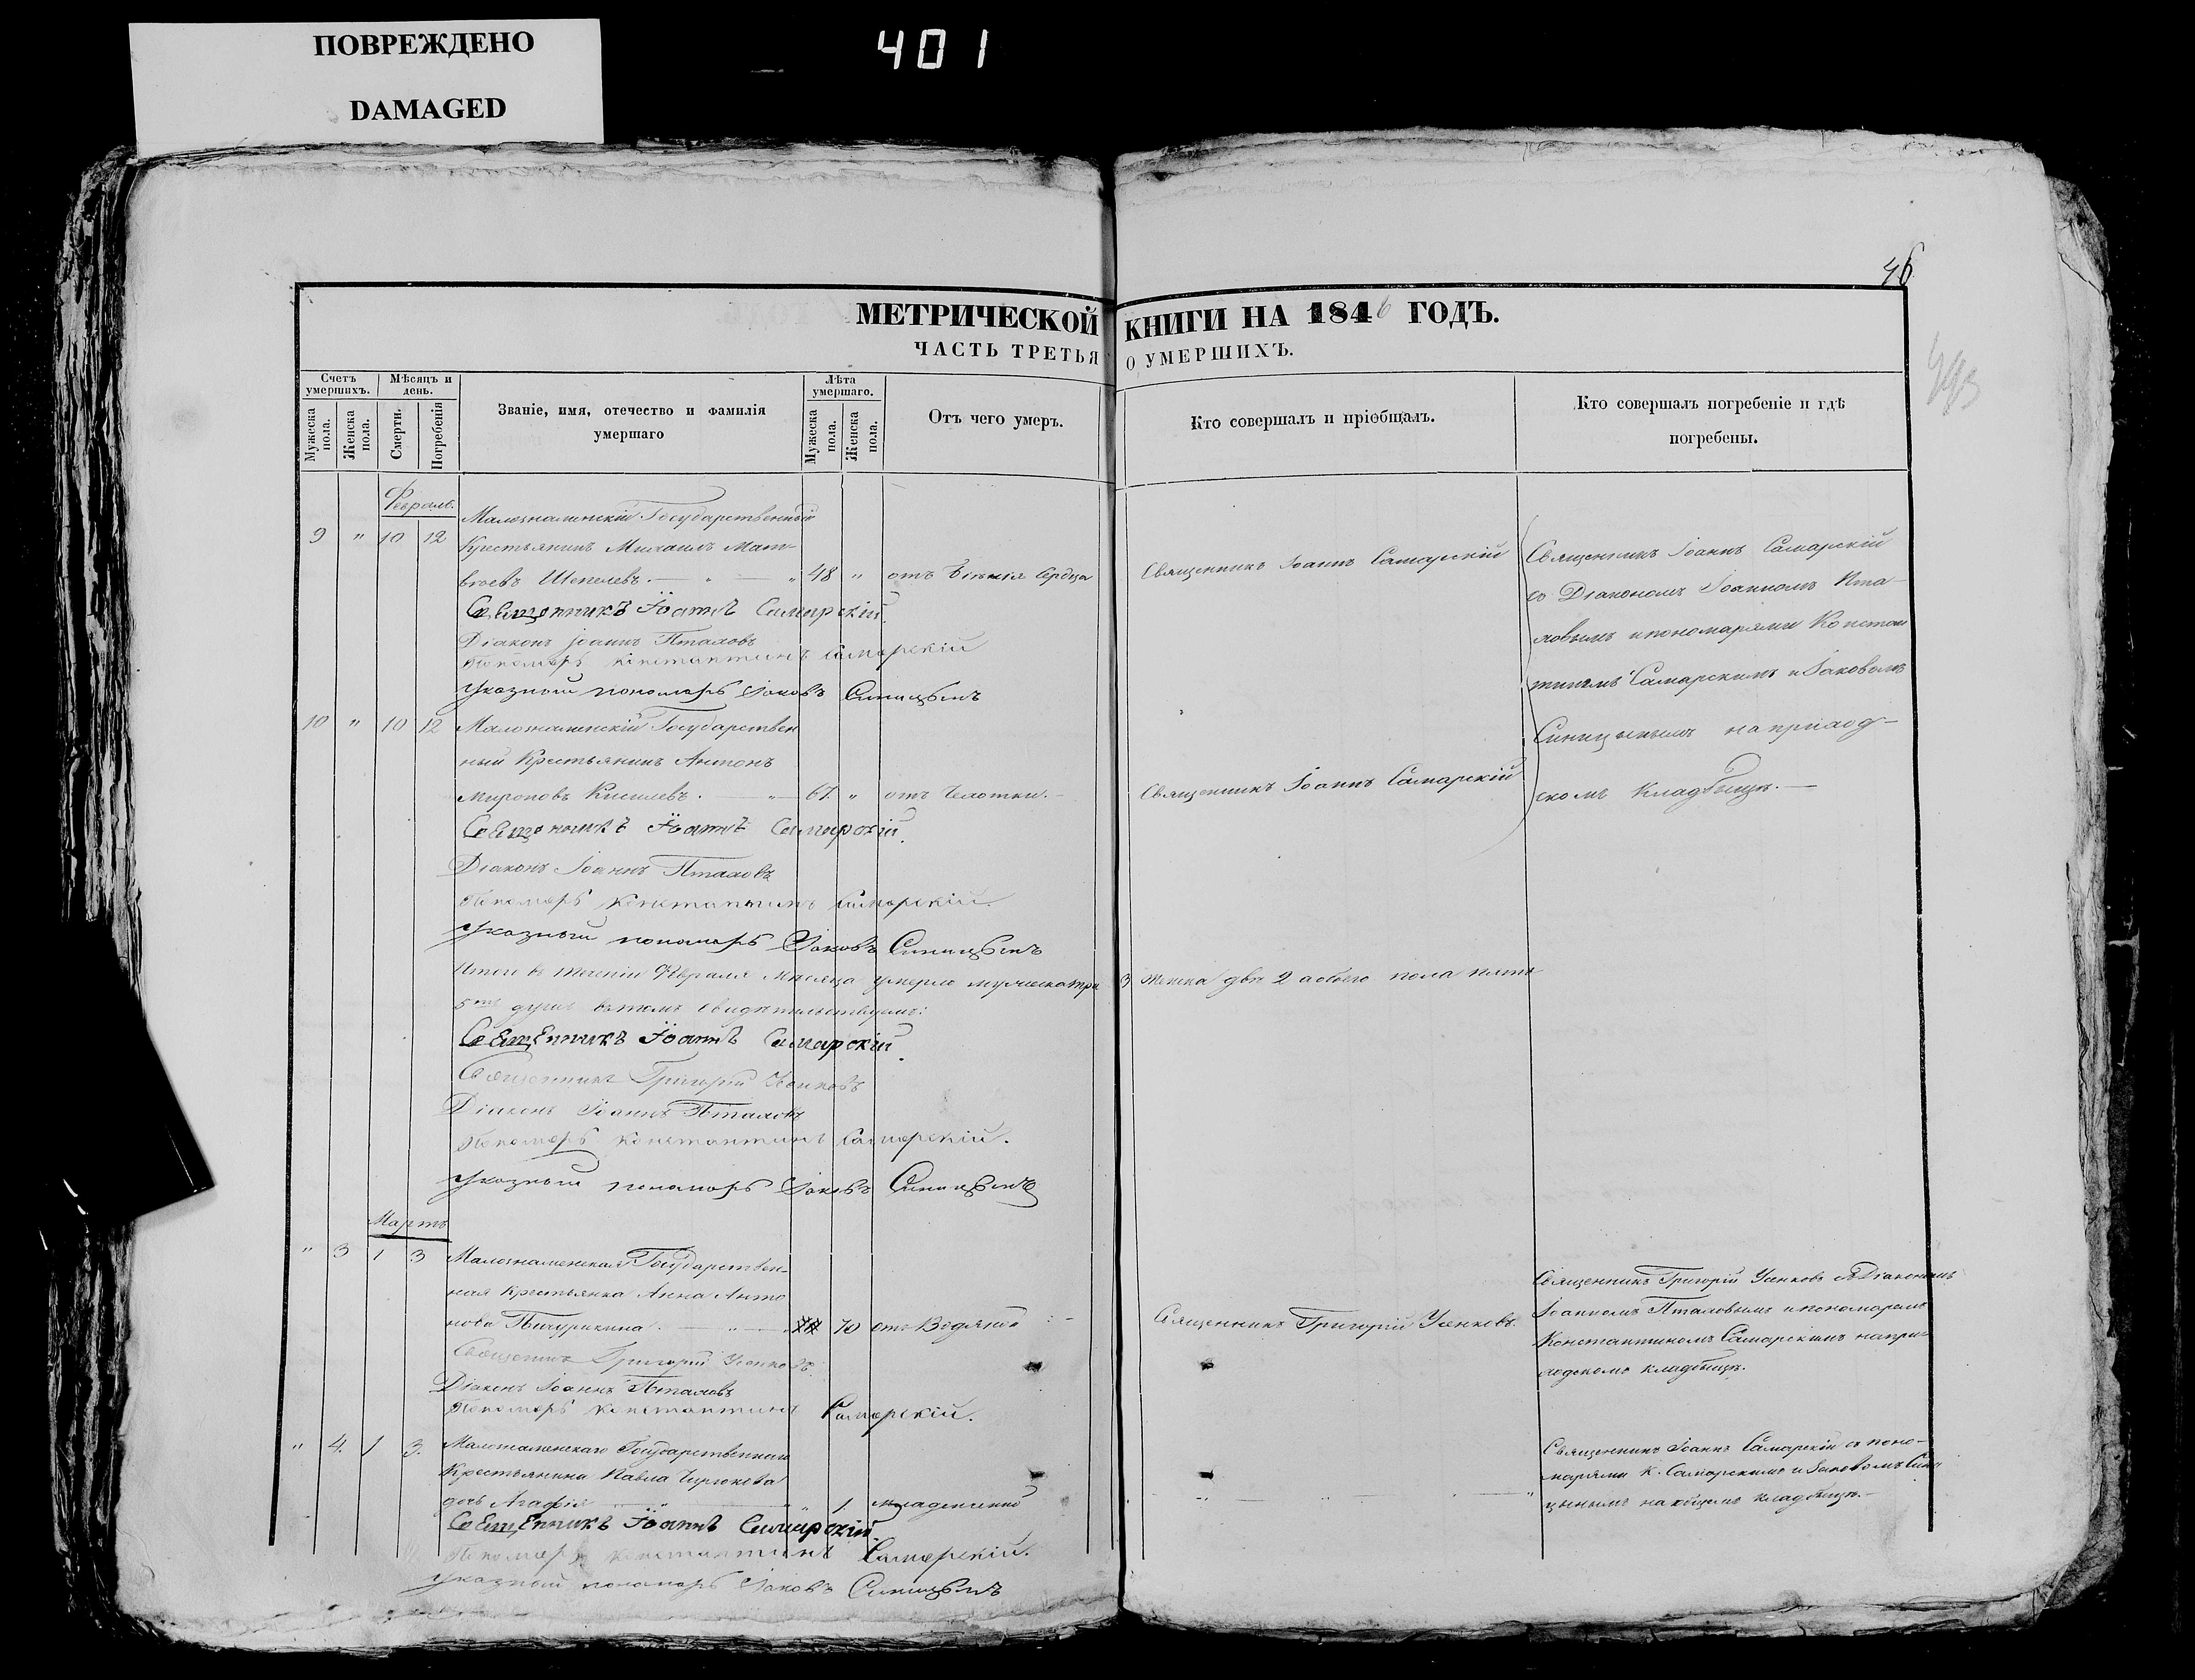 ПОВРЕЖДЕНО
DAMAGED
401
46
МЕТРИЧЕСКОЙ КНИГИ НА 1846 ГОДЪ.
ЧАСТЬ ТРЕТЬЯ О УМЕРШИХЪ.
Счетъ умершихъ.
Мѣсяцъ и день.
Званіе, имя, отечество и фамилія умершаго
Лѣта умершаго.
Отъ чего умеръ.
Кто совершалъ и пріобщалъ.
Кто совершалъ погребеніе и гдѣ погребены.
Мужеска пола.
Женска пола.
Смерти.
Погребенія
Мужеска пола.
Женска пола.
Февраль.
Малознаменскій Государственный
9 " 10 12 Крестьянинъ Михаилъ Мат-
вѣевъ Шепелевъ. " " 48 " отъ біенія сердца
Священникъ Іоаннъ Самарскій
Священникъ Іоаннъ Самарскій
со Діакономъ Іоанномъ Пта-
ховымъ и пономарями Констан
тиномъ Самарскимъ и Іаковомъ
Синицынымъ на приход-
скомъ кладбищѣ.
Священникъ Іоаннъ Самарскій.
Діаконъ Іоаннъ Птаховъ
Пономарь Константинъ Самарскій
Указный пономарь Іаковъ Синицынъ
10 " 10 12 Малознаменскій Государствен
ный Крестьянинъ Антонъ
Мироновъ Киселевъ. " 67 " отъ чахотки.
Священникъ Іоаннъ Самарскій
Священникъ Іоаннъ Самарскій.
Діаконъ Іоаннъ Птаховъ
Пономарь Константинъ Самарскій.
Указный пономарь Іаковъ Синицынъ
Итого въ теченіи Февраля Мѣсяца умерло мужеска три 3 женска двѣ 2 а обоего пола пять
5 душъ въ томъ свидѣтельствуемъ:
Священникъ Іоаннъ Самарскій.
Священникъ Григорій Усенковъ
Діаконъ Іоаннъ Птаховъ
Пономарь Константинъ Самарскій.
Указный пономарь Іаковъ Синицынъ
Мартъ
" 3 1 3 Малознаменская Государствен-
ная Крестьянка Анна Анто
нова " 70 отъ Водяной
Священникъ Григорій Усенковъ.
Священникъ Григорій Усенковъ съ Діакономъ
Іоанномъ Птаховымъ и пономаремъ
Константиномъ Самарскимъ на при-
ходскомъ кладбищѣ.
Священникъ Григорій Усенковъ
Діаконъ Іоаннъ Птаховъ
Пономарь Константинъ Самарскій.
" 4. 1 3. Малознаменскаго Государственнаго
Крестьянина Павла
дочь Агафія " 1 младенческой
Священникъ Іоаннъ Самарскій съ поно-
марями К. Самарскимъ и Іаковомъ Сини
цынымъ на общемъ кладбищѣ.
Священникъ Іоаннъ Самарскій.
Пономарь Константинъ Самарскій.
Указный пономарь Іаковъ Синицынъ